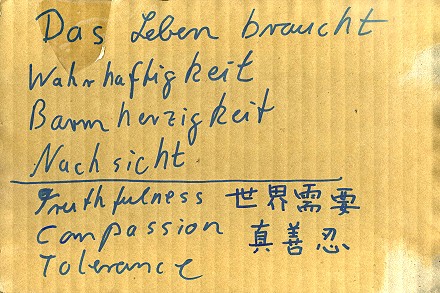 Das Leben braucht
Wahrhaftigkeit
Barmherzigkeit
Nachsicht
Truthfulness 世界需要
Compassion 真善忍
Tolerance